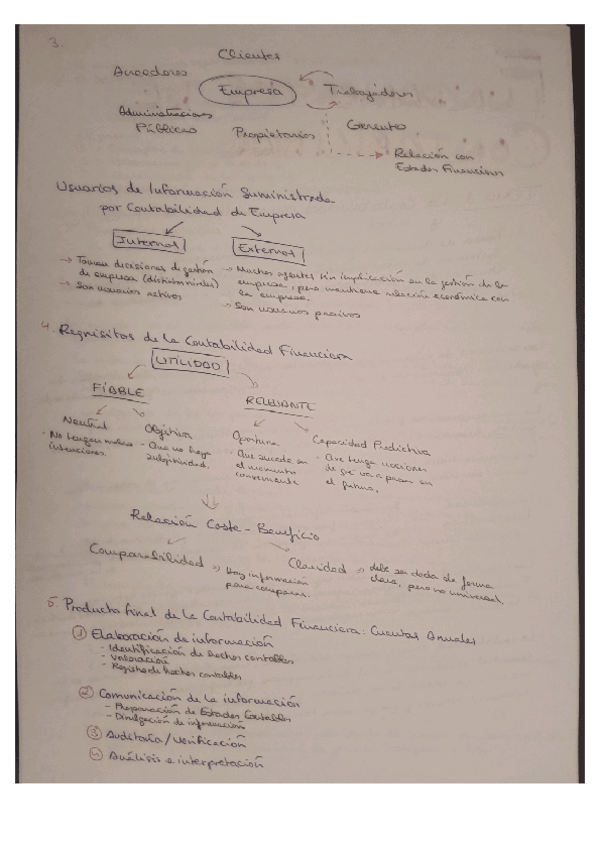 3.
Clientes
Acreedores
Empresa
Trabajadores
Administraciones
Públicas
Propietarios
Gerentes
Relación con
Estados Financieros
Usuarios de Información Suministrada
por Contabilidad de Empresa
Internos
Externos
→ Toman decisiones de gestión
de empresa (distintos niveles)
→ Son usuarios activos
→ Muchos agentes sin implicación en la gestión de la
empresa, pero mantiene relación económica con
la empresa.
→ Son usuarios pasivos
4. Requisitos de la Contabilidad Financiera
UTILIDAD
FIABLE
RELEVANTE
Neutral
· No tengan malas
intenciones.
Objetiva
· Que no haya
subjetividad.
Oportuna
· Que suceda en
el momento
conveniente
Capacidad Predictiva
· Que tenga nociones
de qué va a pasar en
el futuro.
Relación Coste - Beneficio
Comparabilidad
Hay información
para comparar.
Claridad
debe ser dada de forma
clara, pero no universal
5. Producto final de la Contabilidad Financiera: Cuentas Anuales
① Elaboración de información
- Identificación de hechos contables
- Valoración
- Registro de hechos contables
② Comunicación de la información
- Preparación de Estados Contables
- Divulgación de información
③ Auditoría / Verificación
④ Análisis e interpretación